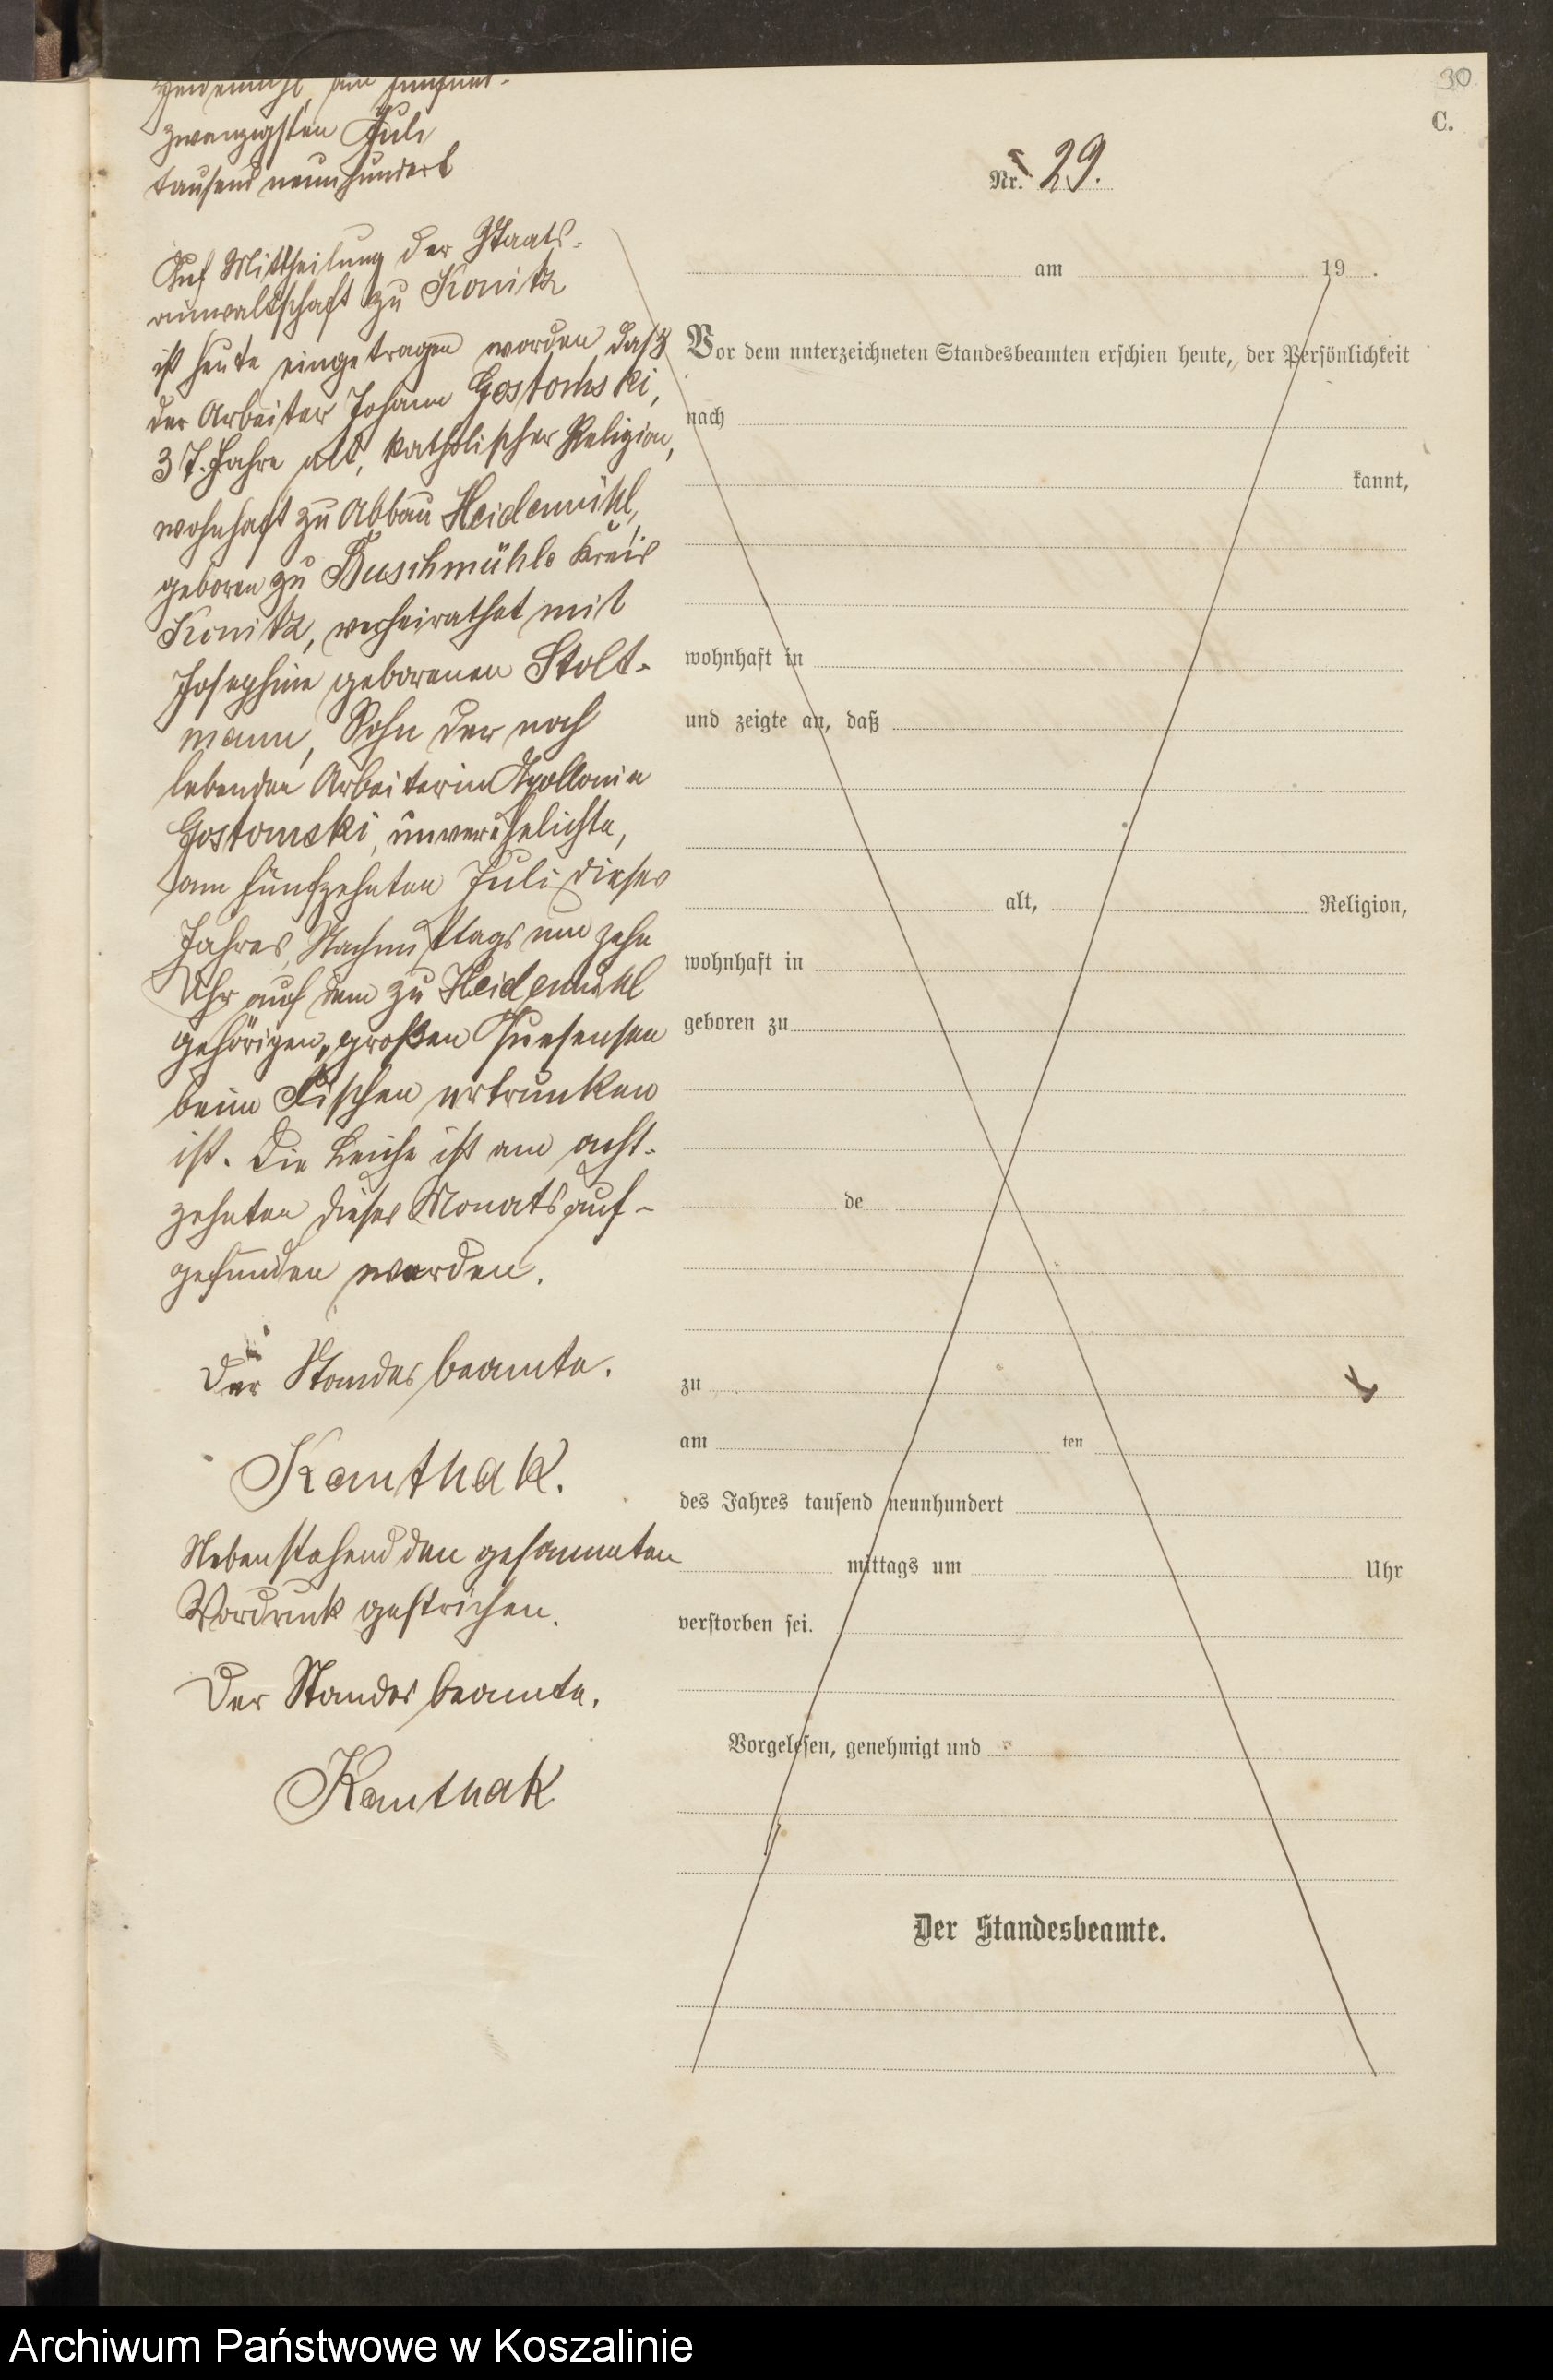 30
C.
am fünfund-
zwanzigsten Juli
tausend neunhundert
Nr. 29.
Auf Mittheilung der Staats-
anwaltschaft zu Konitz
ist heute eingetragen worden, daß
der Arbeiter Johann Gostomski,
37. Jahre alt, katholischer Religion,
wohnhaft zu Abbau Heidemühl,
geboren zu Buschmühle Kreis
Konitz, verheirathet mit
Josephine geborenen Stolt-
mann, Sohn der noch
lebenden Arbeiterin Apollonia
Gostomski, unverehelichte,
am fünfzehnten Juli dieses
Jahres, Nachmittags um zehn
Uhr auf dem zu Heidemühl
gehörigen, großen
beim Fischen ertrunken
ist. Die Leiche ist am acht-
zehnten dieses Monats auf-
gefunden worden.
Der Standesbeamte.
Kanthak.
Nebenstehend den gesammten
Vordruck gestrichen.
Der Standesbeamte.
Kanthak
am 19 .
Vor dem unterzeichneten Standesbeamten erschien heute, der Persönlichkeit
nach
kannt,
wohnhaft in
und zeigte an, daß
alt, Religion,
wohnhaft in
geboren zu
de
zu
am ten
des Jahres tausend neunhundert
mittags um Uhr
verstorben sei.
Vorgelesen, genehmigt und
Der Standesbeamte.
Archiwum Państwowe w Koszalinie